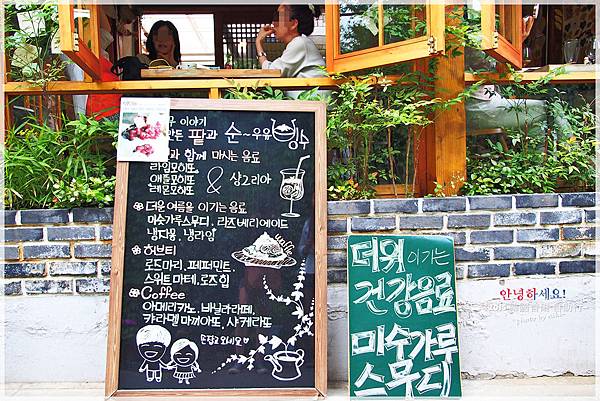 이야기
팥과 순~우유
빙수
과 함께 마시는 음료
라임모히또
애플모히또
레몬모히또
& 상그리아
더운여름을 이기는 음료
미숫가루스무디, 라즈베리에이드
냉다몽, 냉라임
허브티
로드마리, 페퍼민트,
스위트 마테, 로즈힙
Coffee
아메리카노, 바닐라라떼
카라멜 마끼아또, 샤케라또
손잡고 오세요
Waffle
더위 이기는
건강음료
미숫가루
스무디
안녕하세요!